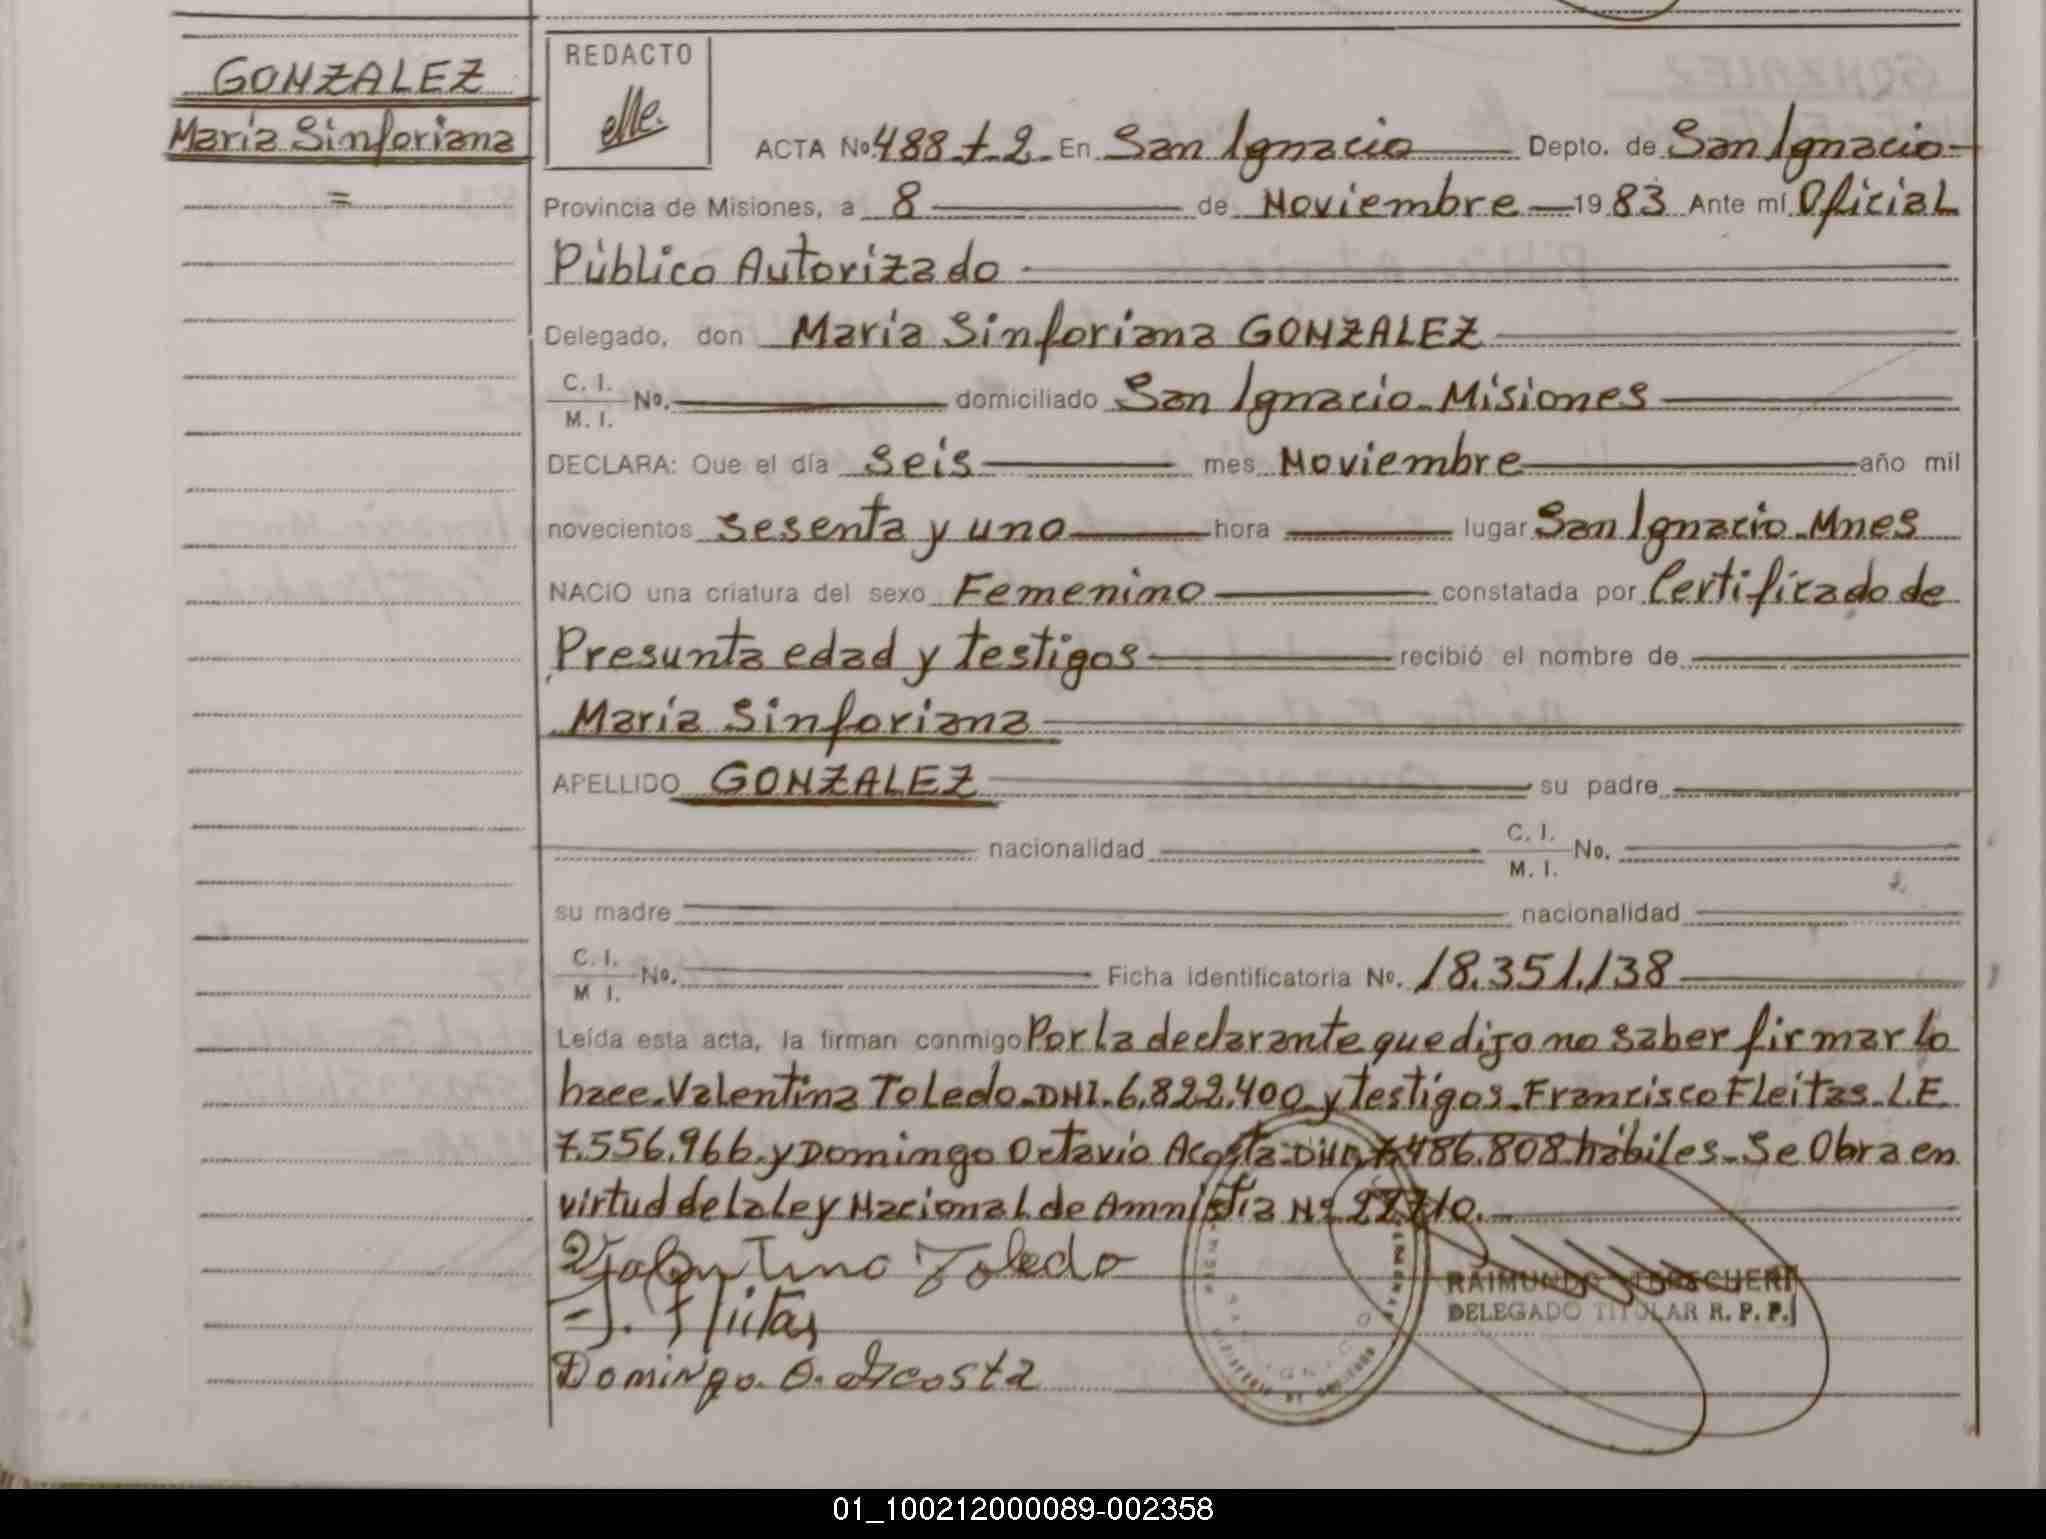 GONZALEZ
María Sinforiana
=
REDACTO
ACTA No. 488 t. 2. En San Ignacio Depto. de San Ignacio
Provincia de Misiones, a 8 de Noviembre 1983 Ante mí Oficial
Público Autorizado
Delegado, don María Sinforiana GONZALEZ
C. I.
M. I. No. domiciliado San Ignacio-Misiones
DECLARA: Que el día seis mes Noviembre año mil
novecientos sesenta y uno hora lugar San Ignacio-Mnes
NACIO una criatura del sexo Femenino constatada por Certificado de
Presunta edad y testigos recibió el nombre de
María Sinforiana
APELLIDO GONZALEZ su padre
nacionalidad C. I. M. I. No.
su madre nacionalidad
C. I. M I. No. Ficha identificatoria No. 18.351.138
Leída esta acta, la firman conmigo Por la declarante que dijo no saber firmar lo
hace-Valentina Toledo-DNI-6.822.400 y testigos-Francisco Fleitas-L.E
7.556.966-y Domingo Octavio Acosta-DNI 7.486.808 hábiles-Se Obra en
virtud de la ley Nacional de Amnistía Nº
Valentina Toledo
F. Fleitas
Domingo. O. Acosta
RAIMUNDO
DELEGADO TITULAR R. P. P.
01_100212000089-002358